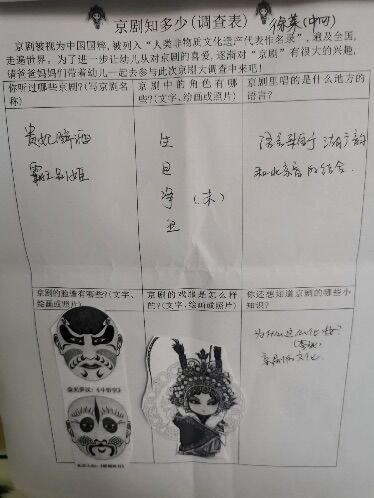 京剧知多少(调查表)
京剧被视为中国国粹,被列入“人类非物质文化遗产代表作名录”,遍及全国,
走遍世界。为了进一步让幼儿从对京剧的喜爱,逐渐对“京剧”有很大的兴趣,
请爸爸妈妈们带着幼儿一起去参与此次京剧大调查中来吧!
你听过哪些京剧?(写京剧名
称)
贵妃醉酒
霸王别姬
京剧中的角色有哪
些?(文字、绘画或照片)
生
旦
净 (末)
丑
京剧里唱的是什么地方的
语言?
和北京音的结合.
京剧的脸谱有哪些?(文字、
绘画或照片)
京剧的戏服是怎么样
的?(文字、绘画或照片)
你还想知道京剧的哪些小
知识?
京剧的文化